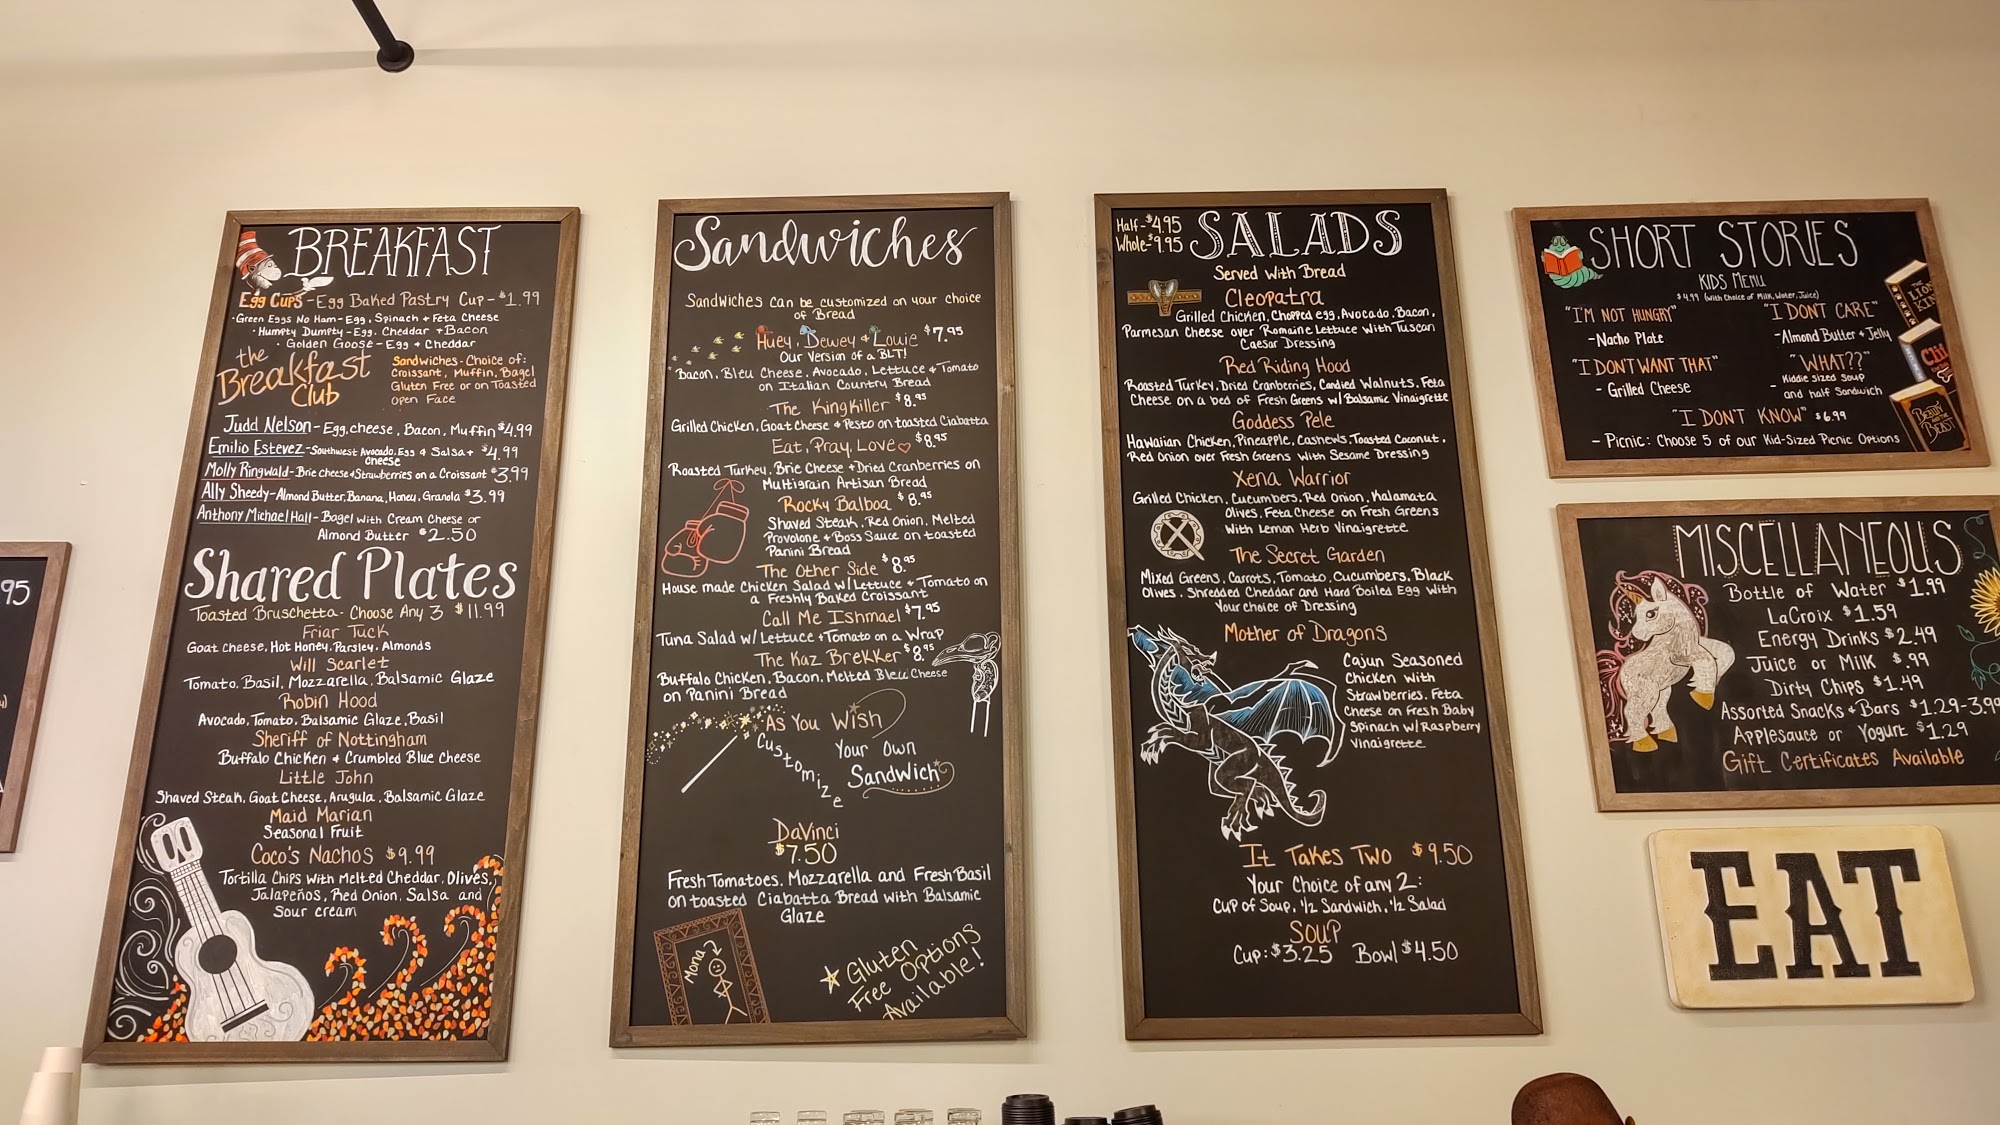 95
BREAKFAST
Egg Cups - Egg Baked Pastry Cup - $1.99
·Green Eggs No Ham - Egg, Spinach + Feta Cheese
·Humpty Dumpty - Egg, Cheddar + Bacon
·Golden Goose - Egg + Cheddar
the
Breakfast
Club
Sandwiches - Choice of:
Croissant, Muffin, Bagel
Gluten Free or on Toasted
Open Face
Judd Nelson - Egg, cheese, Bacon, Muffin $4.99
Emilio Estevez - Southwest Avocado, Egg & Salsa + $4.99
cheese
Molly Ringwald - Brie Cheese + Strawberries on a Croissant $3.99
Ally Sheedy - Almond Butter, Banana, Honey, Granola $3.99
Anthony Michael Hall - Bagel with Cream Cheese or
Almond Butter $2.50
Shared Plates
Toasted Bruschetta - Choose Any 3 $11.99
Friar Tuck
Goat Cheese, Hot Honey, Parsley, Almonds
Will Scarlet
Tomato, Basil, Mozzarella, Balsamic Glaze
Robin Hood
Avocado, Tomato, Balsamic Glaze, Basil
Sheriff of Nottingham
Buffalo Chicken + Crumbled Blue Cheese
Little John
Shaved Steak, Goat Cheese, Arugula, Balsamic Glaze
Maid Marian
Seasonal Fruit
Coco's Nachos $9.99
Tortilla Chips with Melted Cheddar, Olives,
Jalapeños, Red Onion, Salsa and
Sour cream
Sandwiches
Sandwiches can be customized on your choice
of Bread
Huey, Dewey + Louie $7.95
Our Version of a BLT!
Bacon, Bleu Cheese, Avocado, Lettuce + Tomato
on Italian Country Bread
The KingKiller $8.95
Grilled Chicken, Goat Cheese + Pesto on toasted Ciabatta
Eat, Pray, Love♡ $8.95
Roasted Turkey, Brie Cheese + Dried Cranberries on
Multigrain Artisan Bread
Rocky Balboa $8.95
Shaved Steak, Red Onion, Melted
Provolone + Boss Sauce on toasted
Panini Bread
The Other Side $8.95
House made Chicken Salad w/ Lettuce + Tomato on
a Freshly Baked Croissant
Call Me Ishmael $7.95
Tuna Salad w/ Lettuce + Tomato on a Wrap
The Kaz Brekker $8.95
Buffalo Chicken, Bacon, Melted Bleu Cheese
on Panini Bread
As You Wish
Customize
Your Own
Sandwich
DaVinci
$7.50
Fresh Tomatoes, Mozzarella and Fresh Basil
on toasted Ciabatta Bread with Balsamic
Glaze
Mona
Gluten
Free Options
Available!
Half - $4.95
Whole - $9.95
SALADS
Served with Bread
Cleopatra
Grilled Chicken, Chopped egg, Avocado, Bacon,
Parmesan Cheese over Romaine Lettuce with Tuscan
Caesar Dressing
Red Riding Hood
Roasted Turkey, Dried Cranberries, Candied Walnuts, Feta
Cheese on a bed of Fresh Greens w/ Balsamic Vinaigrette
Goddess Pele
Hawaiian Chicken, Pineapple, Cashews, Toasted Coconut,
Red Onion over Fresh Greens with Sesame Dressing
Xena Warrior
Grilled Chicken, Cucumbers, Red Onion, Kalamata
Olives, Feta Cheese on Fresh Greens
with Lemon Herb Vinaigrette
The Secret Garden
Mixed Greens, Carrots, Tomato, Cucumbers, Black
Olives, Shredded Cheddar and Hard Boiled Egg with
Your choice of Dressing
Mother of Dragons
Cajun Seasoned
Chicken with
Strawberries, Feta
Cheese on Fresh Baby
Spinach w/ Raspberry
Vinaigrette
It Takes Two $9.50
Your Choice of any 2:
Cup of Soup, 1/2 Sandwich, 1/2 Salad
SOUP
Cup: $3.25 Bowl $4.50
SHORT STORIES
KIDS MENU
$4.99 (with Choice of Milk, Water, Juice)
"I'M NOT HUNGRY"
- Nacho Plate
"I DON'T CARE"
- Almond Butter + Jelly
"I DON'T WANT THAT"
- Grilled Cheese
"WHAT??"
- Kiddie sized Soup
and half Sandwich
"I DON'T KNOW" $6.99
- Picnic: Choose 5 of our Kid-Sized Picnic Options
THE
LION
KING
BEAUTY
AND THE
BEAST
MISCELLANEOUS
Bottle of Water $1.99
LaCroix $1.59
Energy Drinks $2.49
Juice or Milk $.99
Dirty Chips $1.49
Assorted Snacks + Bars $1.29-3.99
Applesauce or Yogurt $1.29
Gift Certificates Available
EAT